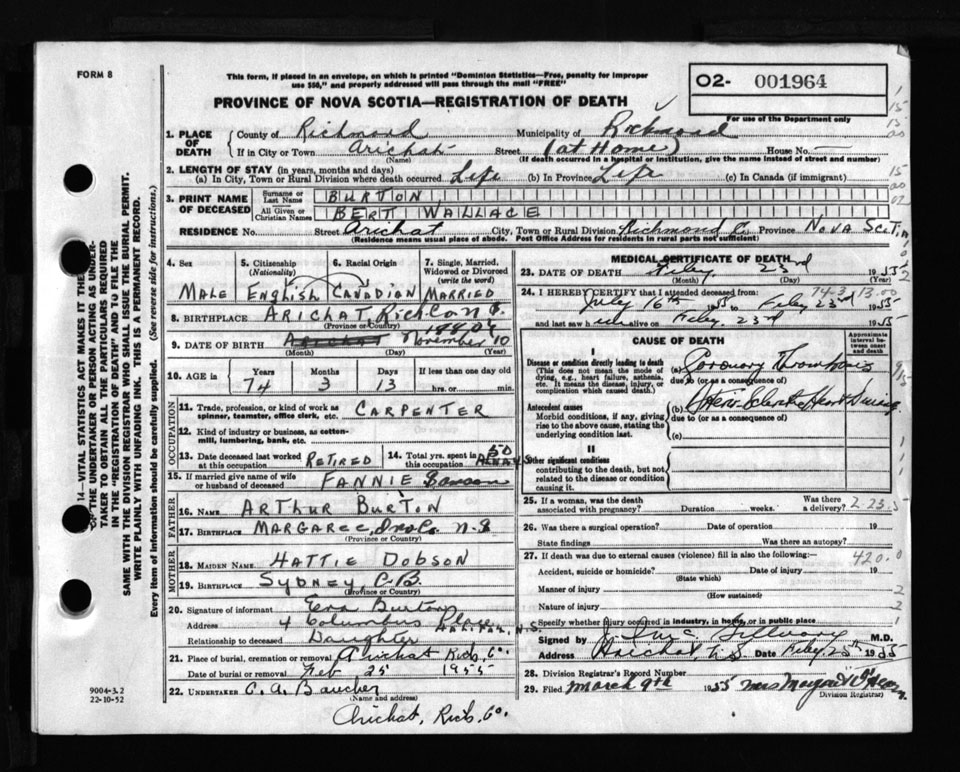 FORM 8
This form, if placed in an envelope, on which is printed "Dominion Statistics—Free, penalty for improper
use $50," and properly addressed will pass through the mail "FREE"
O2- 001964
For use of the Department only
PROVINCE OF NOVA SCOTIA—REGISTRATION OF DEATH
1. PLACE OF DEATH
County of Richmond Municipality of Richmond
If in City or Town Arichat Street (at Home) House No. —
(Name) (If death occurred in a hospital or institution, give the name instead of street and number)
2. LENGTH OF STAY (in years, months and days)
(a) In City, Town or Rural Division where death occurred Life (b) In Province Life (c) In Canada (if immigrant)
3. PRINT NAME OF DECEASED
Surname or Last Name BURTON
All Given or Christian Names BERT WALLACE
RESIDENCE No. Street Arichat City, Town or Rural Division Richmond Co. Province NOVA
(Residence means usual place of abode. Post Office Address for residents in rural parts not sufficient)
4. Sex
MALE
5. Citizenship
(Nationality)
ENGLISH
6. Racial Origin
CANADIAN
7. Single, Married, Widowed or Divorced
(write the word)
MARRIED
8. BIRTHPLACE ARICHAT,
(Province or Country)
9. DATE OF BIRTH November 10
(Month) (Day) (Year)
10. AGE in
Years Months Days If less than one day old
74 3 13 hrs. or min.
OCCUPATION
11. Trade, profession, or kind of work as
spinner, teamster, office clerk, etc. CARPENTER
12. Kind of industry or business, as cotton-
mill, lumbering, bank, etc.
13. Date deceased last worked
at this occupation RETIRED
14. Total yrs. spent in
this occupation 50
15. If married give name of wife
or husband of deceased FANNIE
FATHER
16. NAME ARTHUR BURTON
17. BIRTHPLACE MARGAREE, N.S
(Province or Country)
MOTHER
18. MAIDEN NAME HATTIE DOBSON
19. BIRTHPLACE SYDNEY C.B.
(Province or Country)
20. Signature of informant Eva Burton
Address 4 Columbus Place N.S.
Relationship to deceased Daughter
21. Place of burial, cremation or removal Arichat Rich. Co.
Date of burial or removal Feb 25 1955
22. UNDERTAKER C. A. Boucher
(Name and address)
Arichat, Rich. Co.
MEDICAL CERTIFICATE OF DEATH
23. DATE OF DEATH Feby. 23rd 1955
(Month) (Day) (Year)
24. I HEREBY CERTIFY that I attended deceased from:
July 16th 1955 to Feby 23rd 1955
and last saw h alive on Feby. 23rd 1955
CAUSE OF DEATH
Approximate interval between onset and death
I
Disease or condition directly leading to death
(This does not mean the mode of dying, e.g., heart failure, asthenia, etc. It means the disease, injury, or complication which caused death.)
(a) Coronary Thrombosis
due to (or as a consequence of)
Antecedent causes
Morbid conditions, if any, giving rise to the above cause, stating the underlying condition last.
(b) Heart Disease
due to (or as a consequence of)
(c)
II
Other significant conditions
contributing to the death, but not related to the disease or condition causing it.
25. If a woman, was the death
associated with pregnancy? Duration weeks. Was there a delivery?
26. Was there a surgical operation? Date of operation 19
State findings Was there an autopsy?
27. If death was due to external causes (violence) fill in also the following:—
420.0
Accident, suicide or homicide? Date of injury 19
(State which)
Manner of injury
(How sustained)
Nature of injury
Specify whether injury occurred in industry, in home, or in public place
Signed by M.D.
Address Arichat, N.S. Date Feby. 25th 1955
28. Division Registrar's Record Number
29. Filed March 9th 1955 Mrs
Division Registrar.
14—VITAL STATISTICS ACT MAKES IT THE
OF THE UNDERTAKER OR PERSON ACTING AS UNDER-
TAKER TO OBTAIN ALL THE PARTICULARS REQUIRED
IN THE "REGISTRATION OF DEATH" AND TO FILE THE
SAME WITH THE DIVISION REGISTRAR WHO SHALL ISSUE THE BURIAL PERMIT.
WRITE PLAINLY WITH UNFADING INK. THIS IS A PERMANENT RECORD.
Every item of information should be carefully supplied. (See reverse side for instructions.)
9004-3.2
22-10-52